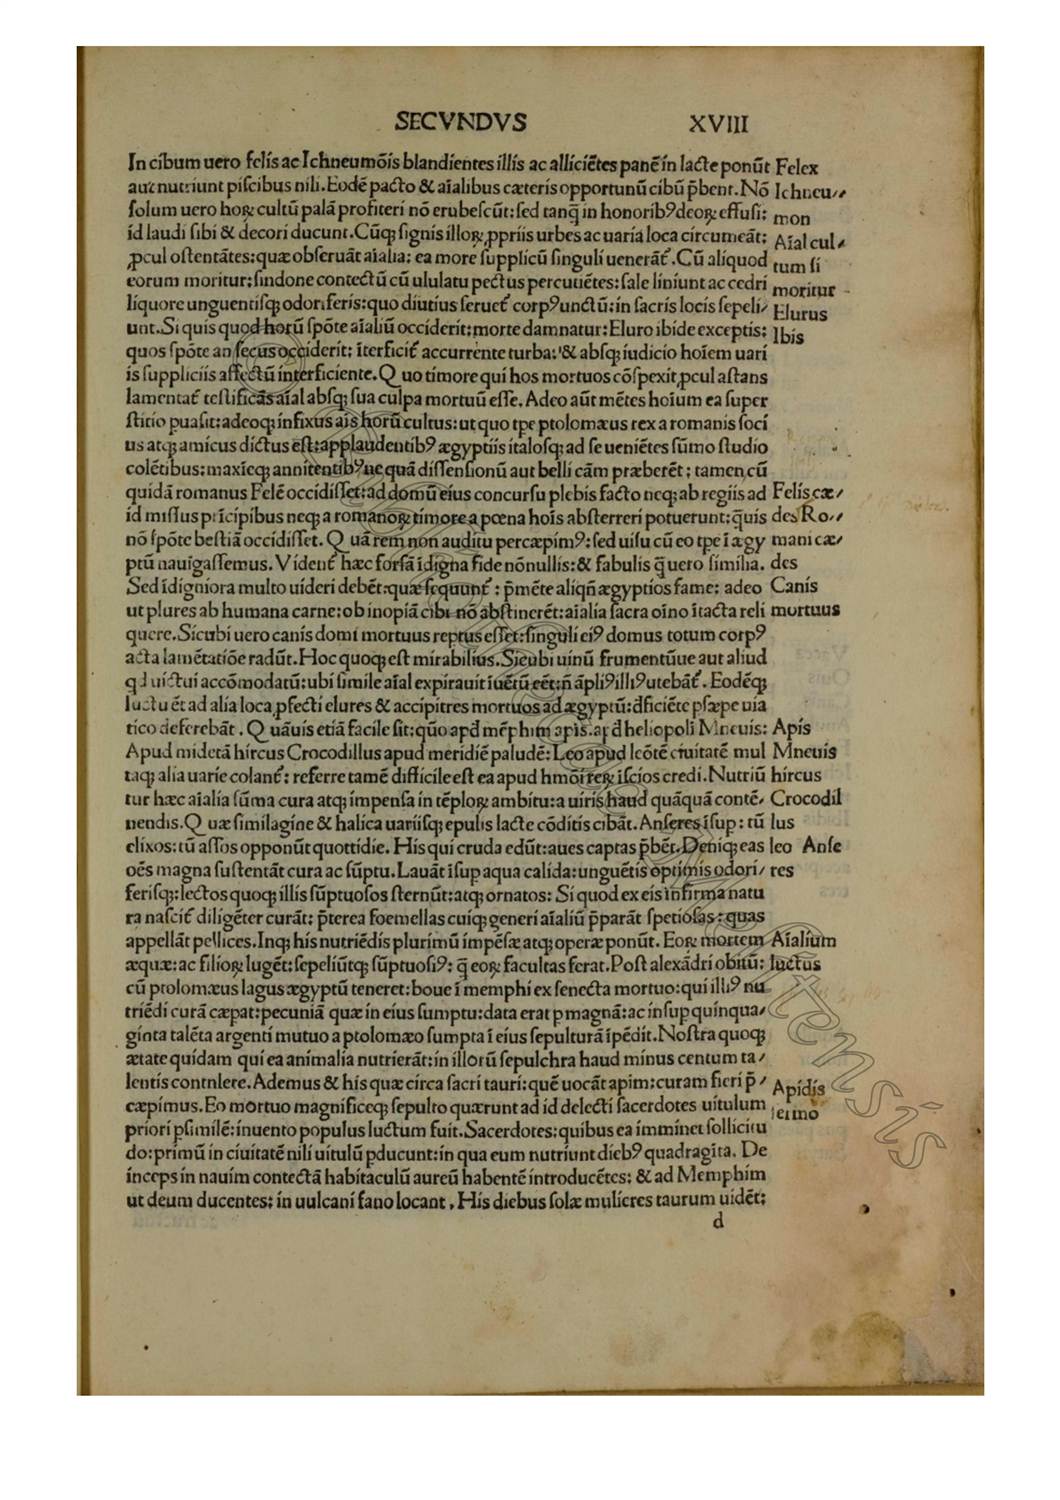 SECVNDVS XVIII
In cibum uero felis ac Ichneumōis blandientes illis ac alliciētes panē in lacte ponūt
aut nutriunt piscibus nili. Eodē pacto & aīalibus cæteris opportunū cibū p̄bent. Nō
solum uero hoꝝ cultū palā profiteri nō erubescūt: sed tanq̄ in honoribꝰ deoꝝ effusi:
id laudi sibi & decori ducunt. Cūqꝫ signis illoꝝ ꝓpriis urbes ac uaria loca circumeāt:
ꝓcul ostentātes: quæ obseruāt aialia: ea more supplicū singuli uenerāt̄. Cū aliquod
eorum moritur: sindone contectū cū ululatu pectus percutiētes: sale liniunt ac cedri
liquore unguentisqꝫ odoriferis: quo diutius seruet̄ corpꝰ unctū: in sacris locis sepeli⸗
unt. Si quis quod horū spōte aīaliū occiderit: morte damnatur: Eluro ibide exceptis:
quos spōte an secus occiderit: īterficit̄ accurrente turba: & absqꝫ iudicio hoīem uari
is suppliciis affectū interficiente. Quo timore qui hos mortuos cōspexit ꝓcul astans
lamentat̄ testificās aīal absqꝫ sua culpa mortuū esse. Adeo aūt mētes hoīum ea super
stitio puasit: adeoqꝫ infixus aīs horū cultus: ut quo tpe ptolomæus rex a romanis soci
us atqꝫ amicus dictus est: applaudentibꝰ ægyptiis italosqꝫ ad se ueniētes sūmo studio
colētibus: maxīeqꝫ annitentibꝰ ne quā dissensionū aut belli cām præberēt: tamen cū
quidā romanus Felē occidisset: ad domū eius concursu plebis facto neqꝫ ab regiis ad
id missus prīcipibus neqꝫ a romanoꝝ timore a pœna hoīs absterreri potuerunt: q̄uis
nō spōte bestiā occidisset. Quā rem non auditu percæpimꝰ: sed uisu cū eo tpe ī ægy
ptū nauigassemus. Vident̄ hæc forsā īdigna fide nōnullis: & fabulis q̄ uero similia.
Sed īdigniora multo uideri debēt: quæ sequunt̄: p̄mēte aliqñ ægyptios fame: adeo
ut plures ab humana carne: ob inopiā cibi nō abstinerēt: aīalia sacra oīno ītacta reli
quere. Sicubi uero canis domi mortuus reptus esset: singuli eiꝰ domus totum corpꝰ
acta lamētatiōe radūt. Hoc quoqꝫ est mirabilius. Sicubi uinū frumentūue aut aliud
qd uictui accōmodatū: ubi simile aīal expirauit īuētū eēt: ñ āpliꝰ illiꝰ utebāt̄. Eodēqꝫ
luctu ēt ad alia loca ꝓfecti elures & accipitres mortuos ad ægyptū: dficiēte psæpe uia
tico deferebāt. Quāuis etiā facile sit: quō apd mēphim apis. apd heliopoli Mneuis:
Apud midetā hircus Crocodillus apud meridiē paludē: Leo apud leōtē ciuitatē mul
taqꝫ alia uarie colant̄: referre tamē difficile est ea apud hmōi reꝝ īscios credi. Nutriū
tur hæc aīalia sūma cura atqꝫ impensa in tēploꝝ ambitu: a uiris haud quāquā contē⸗
nendis. Quæ similagine & halica uariisqꝫ epulis lacte cōditis cibāt. Anseres īsup: tū
elixos: tū assos opponūt quottidie. His qui cruda edūt: aues captas p̄bēt. Deniqꝫ eas
oēs magna sustentāt cura ac sūptu. Lauāt īsup aqua calida: unguētis optimis odori⸗
ferisqꝫ: lectos quoqꝫ illis sūptuosos sternūt: atqꝫ ornatos: Si quod ex eis infirma natu
ra nascit̄ diligēter curāt: p̄terea foemellas cuiqꝫ generi aīaliū p̄parāt spetiosas: quas
appellāt pellices. Inqꝫ his nutriēdis plurimū impēsæ atqꝫ operæ ponūt. Eoꝝ mortem
æquæ: ac filioꝝ lugēt: sepeliūtqꝫ sūptuosiꝰ: q̄ eoꝝ facultas ferat. Post alexādri obitū:
cū ptolomæus lagus ægyptū teneret: boue ī memphi ex senecta mortuo: qui illiꝰ nu
triēdi curā cæpat: pecuniā quæ in eius sumptu: data erat p magnā: ac insup quinqua⸗
ginta talēta argenti mutuo a ptolomæo sumpta ī eius sepulturā īpēdit. Nostra quoqꝫ
ætate quidam qui ea animalia nutrierāt: in illorū sepulchra haud minus centum ta⸗
lentis contulere. Ademus & his quæ circa sacri tauri: quē uocāt apim: curam fieri p̄⸗
cæpimus. Eo mortuo magnificeqꝫ sepulto quærunt ad id delecti sacerdotes uitulum
priori psimilē: inuento populus luctum fuit. Sacerdotes: quibus ea imminet sollicitu
do: primū in ciuitatē nili uitulū pducunt: in qua eum nutriunt diebꝰ quadragīta. De
inceps in nauim contectā habitaculū aureū habentē introducētes: & ad Memphim
ut deum ducentes: in uulcani fano locant. His diebus solæ mulieres taurum uidēt:
d
Felex
Ichneu⸗
mon
Aīal cul⸗
tum si
moritur
Elurus
Ibis
Felis cæ⸗
des Ro⸗
mani cæ⸗
des
Canis
mortuus
Apis
Mneuis
hircus
Crocodil
lus
leo Anse
res
Aīalium
luctus
Apidis
sermo